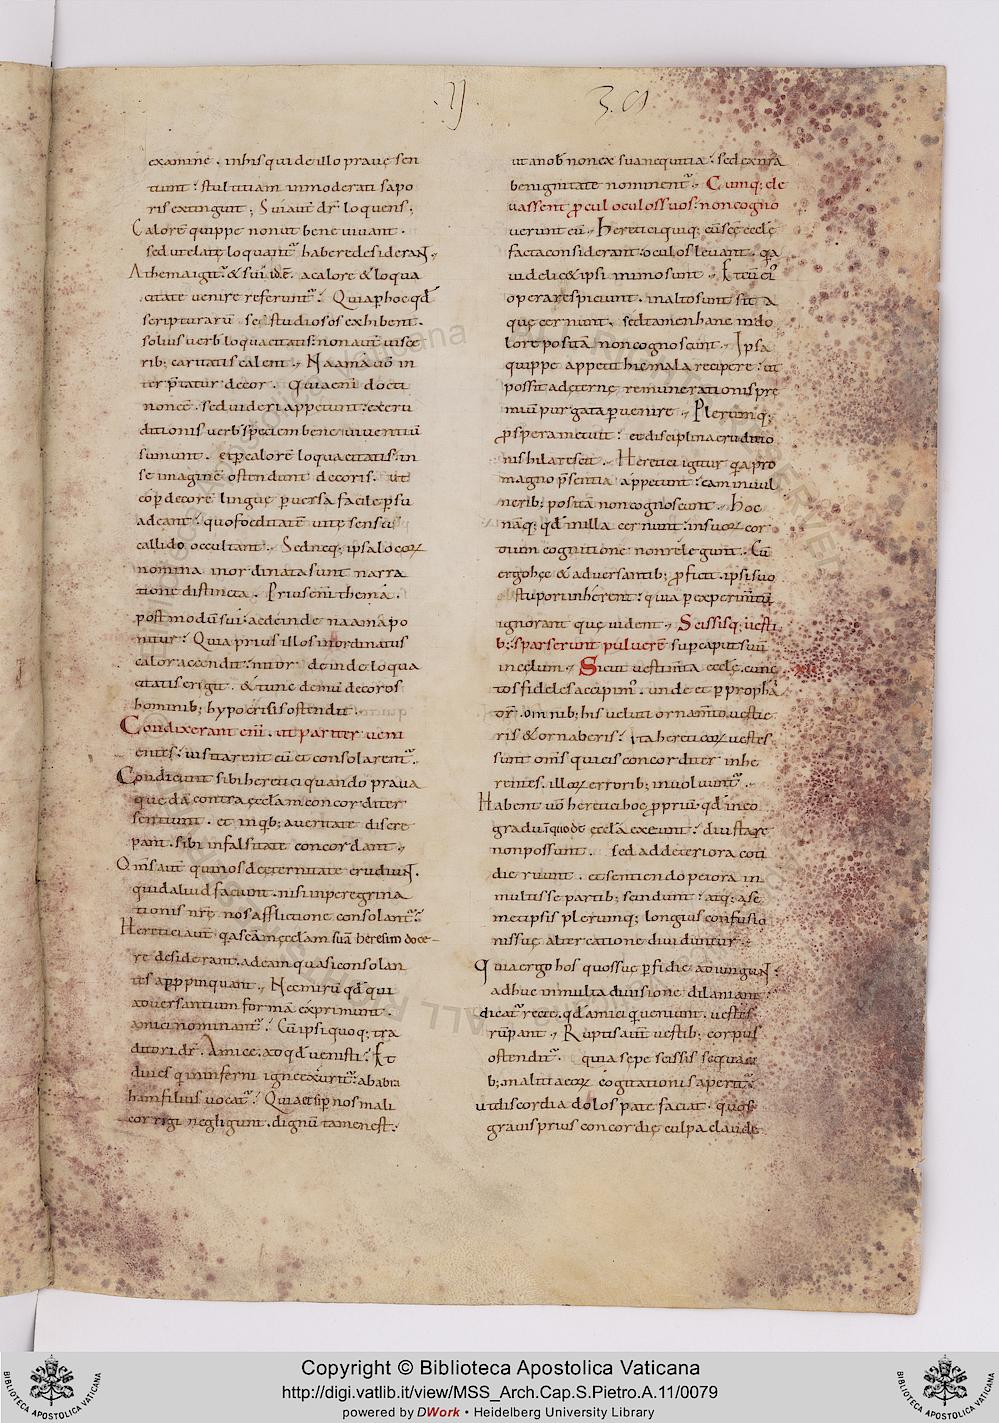 .ij. 39
examine. inhis qui de illo prauę sen
tiunt: stultitiam inmoderati sapo
ris extingunt; Suiauт̄ dr̄ loquens;
Calorē quippe non ut bene uiuant.
sed ut elatę loquant̄ habere desiderant.
Athema igit̄ & sui idē. a calore & loqua
citate uenire referunt̄. Quia ꝑ hoc qd̄
scripturarū se studiosos exhibent.
solius uerb loquacitatis: non aut̄ uisce
rib; caritatis calent. Naamā uō in
terp̄tatur decor. Quia eni docti
non eē. sed uideri appetunt: ex eru
ditionis uerb speciem bene uiuentiū
sumunt. et ꝑ calorē loquacitatis: in
se imaginē ostendunt decoris. ut
cop̄ decorē linguę ꝑuersa facile ꝑsu
adeant: quo foeditatē uitę sensū
callido occultant. Sed neq; ipsa locoꝝ
nomina inordinata sunt narra
tione distincta. Prius eni themā.
post modū sui: ac deinde naamā po
nitur: Quia prius illos inordinatus
calor accendit: nitor deinde loqua
citatis erigit. & tunc demū decoros
hominib; hypocrisis ostendit.
Condixerant eni. ut pariter ueni
entes: uisitarent eū et consolarent̄.
Condicunt sibi heretici quando praua
quędā contra ęcclām concorditer
sentiunt. et in qb; a ueritate discre
pant. sibi in falsitate concordant.
Om̄s aut̄ qui nos de ęternitate erudiunt.
quid aliud faciunt. nisi in peregrina
tionis nrę nos afflictione consolant̄:
Heretici aut̄ qa scām ęcclam suā heresim doce-
re desiderant. ad eam quasi consolan
tes apꝓpinquant. Nec mirū qd̄ qui
aduersantium formā exprimunt.
amici nominant̄. Cū ipsi quoq; tra
ditori dr̄. Amice: ad qd̄ uenisti: Et
diues q in inferni igne exurit̄: ab abra
ham filius uocat̄: Quia etsi ꝑ nos mali
corrigi negligunt. dignū tamen est:
ut a nob non ex sua nequitia: sed ex nrā
benignitate nominent̄. Cumq; ele
uassent ꝓcul oculos suos: non cogno
uerunt eū. Heretici quiq; cū scę ecclę
facta considerant: oculos leuant. qa
uidelic& ipsi in imo sunt. Et cū ei
opera respiciunt. in alto sunt sita
quę cernunt. sed tamen hanc in do
lore positā non cognoscunt. Ipsa
quippe appetit hic mala recipere: ut
possit ad ęternę remunerationis prę
miū purgata ꝑuenire. Plerumq;
ꝓspera metuit: et disciplina eruditio
nis hilarescit. Heretici igitur qa pro
magno p̄sentia appetunt: eam in uul
nerib; positā non cognoscunt. Hoc
nāq; qd̄ in illa cernunt: in suoꝝ cor
dium cognitione non relegunt. Cū
ergo hęc & aduersantib; ꝓficit. ipsi suo
stupori inhęrent: quia ꝑ experim̄tū
ignorant quę uident. Scissisq; uesti
b; sparserunt puluerē sup caput suū
in cęlum. Sicut uestim̄ta ecclę. cunc xii
tos fideles accipim̄. unde et ꝑ prophā
dr̄. omnib; his uelut ornam̄to uestie
ris & ornaberis: ita hereticoꝝ uestes
sunt om̄s qui eis concorditer inhę
rentes. illoꝝ errorib; inuoluunt̄.
Habent uō heretici hoc ꝓpriū. qd̄ in eo
gradu in quo de ecclā exeunt: diu stare
non possunt. sed ad deteriora coti
die ruunt. et sentiendo peiora in
multis se partib; scindunt: atq; a se
metipsis plerumq; longius confusio
nis suę altercatione diuiduntur.
Quia ergo hos quos suę ꝑfidię adiungunt:
adhuc in multa diuisione dilaniant:
dicat̄ recte. qd̄ amici q ueniunt. uestes
rūpant. Ruptis aut̄ uestib; corpus
ostendit̄. quia sepe scissis sequaci
b; malitia eoꝝ cogitationis aperit̄.
ut discordia dolos patefaciat. quos
grauis prius concordię culpa claude
Copyright © Biblioteca Apostolica Vaticana
http://digi.vatlib.it/view/MSS_Arch.Cap.S.Pietro.A.11/0079
powered by DWork • Heidelberg University Library
BIBLIOTECA APOSTOLICA VATICANA
BIBLIOTECA APOSTOLICA VATICANA